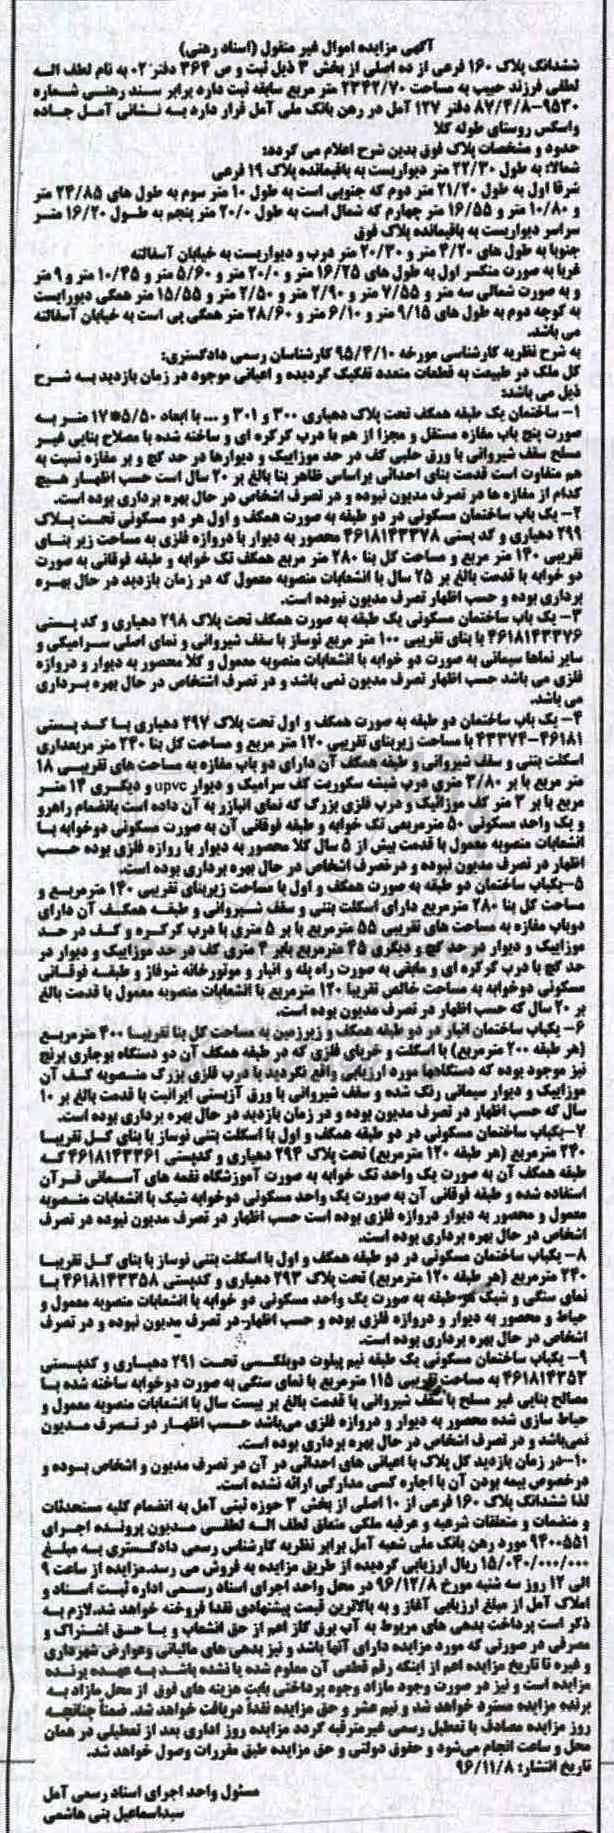 آگهی مزایده اموال غیر منقول (اسناد رهنی)
ششدانگ پلاک ۱۶۰ فرعی از ده اصلی از بخش ۳ ذیل ثبت و ص ۳۶۴ دفتر ۰۲ به نام لطف اله
لطفی فرزند حبیب به مساحت ۲۳۴۲/۷۰ متر مربع سابقه ثبت دارد برابر سند رهنی شماره
۹۵۳۰-۸۷/۴/۸ دفتر ۱۲۷ آمل در رهن بانک ملی آمل قرار دارد به نشانی آمل جاده
واسکس روستای طوله کلا
حدود و مشخصات پلاک فوق بدین شرح اعلام می گردد:
شمالا: به طول ۲۲/۳۰ متر دیواریست به باقیمانده پلاک ۱۹ فرعی
شرقا اول به طول ۲۱/۲۰ متر دوم که جنوبی است به طول ۱۰ متر سوم به طول های ۲۴/۸۵ متر
و ۱۰/۸۰ متر و ۱۶/۵۵ متر چهارم که شمال است به طول ۲۰/۰ متر پنجم به طول ۱۶/۲۰ متر
سراسر دیواریست به باقیمانده پلاک فوق
جنوبا به طول های ۴/۲۰ متر و ۲۰/۳۰ متر درب و دیواریست به خیابان آسفالته
غربا به صورت منکسر اول به طول های ۱۶/۲۵ متر و ۲۰/۰ متر و ۵/۶۰ متر و ۱۰/۴۵ متر و ۹ متر
و به صورت شمالی سه متر و ۷/۵۵ متر و ۲/۹۰ متر و ۲/۵۰ متر و ۱۵/۵۵ متر همگی دیوارایست
به کوچه دوم به طول های ۹/۱۵ متر و ۶/۱۰ متر و ۲۸/۶۰ متر همگی پی است به خیابان آسفالته
می باشد.
به شرح نظریه کارشناسی مورخه ۹۵/۴/۱۰ کارشناسان رسمی دادگستری:
کل ملک در طبیعت به قطعات متعدد تفکیک گردیده و اعیانی موجود در زمان بازدید به شرح
ذیل می باشد:
۱- ساختمان یک طبقه همکف تحت پلاک دهیاری ۳۰۰ و ۳۰۱ و ... با ابعاد ۵/۵۰*۱۷ متر به
صورت پنج باب مغازه مستقل و مجزا از هم با درب کرکره ای و ساخته شده با مصلاح بنایی غیر
مسلح سقف شیروانی با ورق حلبی کف در حد موزاییک و دیوارها در حد گچ و بر مغازه نسبت به
هم متفاوت است قدمت بنای احداثی براساس ظاهر بنا بالغ بر ۲۰ سال است حسب اظهار هیچ
کدام از مغازه ها در تصرف مدیون نبوده و در تصرف اشخاص در حال بهره برداری بوده است.
۲- یک باب ساختمان مسکونی در دو طبقه به صورت همکف و اول هر دو مسکونی تحت پلاک
۲۹۹ دهیاری و کد پستی ۴۶۱۸۱۴۳۳۷۸ محصور به دیوار با دروازه فلزی به مساحت زیر بنای
تقریبی ۱۴۰ متر مربع و مساحت کل بنا ۲۸۰ متر مربع همکف تک خوابه و طبقه فوقانی به صورت
دو خوابه با قدمت بالغ بر ۲۵ سال با انشعابات منصوبه معمول که در زمان بازدید در حال بهره
برداری بوده و حسب اظهار تصرف مدیون نبوده است.
۳- یک باب ساختمان مسکونی یک طبقه به صورت همکف تحت پلاک ۲۹۸ دهیاری و کد پستی
۴۶۱۸۱۴۳۳۷۶ با بنای تقریبی ۱۰۰ متر مربع نوساز با سقف شیروانی و نمای اصلی سرامیکی و
سایر نماها سیمانی به صورت دو خوابه با انشعابات منصوبه معمول و کلا محصور به دیوار و دروازه
فلزی می باشد حسب اظهار تصرف مدیون نمی باشد و در تصرف اشتخاص در حال بهره برداری
می باشد.
۴- یک باب ساختمان دو طبقه به صورت همکف و اول تحت پلاک ۲۹۷ دهیاری با کد پستی
۴۶۱۸۱-۴۳۳۷۴ با مساحت زیربنای تقریبی ۱۲۰ متر مربع و مساحت کل بنا ۲۴۰ متر مربعداری
اسکلت بتنی و سقف شیروانی و طبقه همکف آن دارای دو باب مغازه به مساحت های تقریبی ۱۸
متر مربع با بر ۳/۸۰ متری درب شیشه سکوریت کف سرامیک و دیوار upvc و دیگری ۱۴ متر
مربع با بر ۳ متر کف موزائیک و درب فلزی بزرگ که نمای انبازر به آن داده است بانضمام راهرو
و یک واحد مسکونی ۵۰ مترمربعی تک خوابه و طبقه فوقانی آن به صورت مسکونی دوخوابه با
انشعابات منصوبه معمول با قدمت بیش از ۵ سال کلا محصور به دیوار با روازه فلزی بوده حسب
اظهار در تصرف مدیون نبوده و درتصرف اشخاص در حال بهره برداری بوده است.
۵- یکباب ساختمان دو طبقه به صورت همکف و اول با مساحت زیربنای تقریبی ۱۴۰ مترمربع و
مساحت کل بنا ۲۸۰ مترمربع دارای اسکلت بتنی و سقف شیروانی و طبقه همکف آن دارای
دوباب مغازه به مساحت های تقریبی ۵۵ مترمربع با بر ۵ متری با درب کرکره و کف در حد
موزاییک و دیوار در حد گچ و دیگری ۴۵ مترمربع بابر ۴ متری کف در حد موزاییک و دیوار در
حد گچ با درب کرکره ای و مابقی به صورت راه پله و انبار و موتورخانه شوفاژ و طبقه فوقانی
مسکونی دوخوابه به مساحت خالص تقریبا ۱۲۰ مترمربع با انشعابات منصوبه معمول با قدمت بالغ
بر ۲۰ سال که حسب اظهار در تصرف مدیون بوده است.
۶- یکباب ساختمان انبار در دو طبقه همکف و زیرزمین به مساحت کل بنا تقریبا ۴۰۰ مترمربع
(هر طبقه ۲۰۰ مترمربع) با اسکلت و خرپای فلزی که در طبقه همکف آن دو دستگاه بوجاری برنج
نیز موجود بوده که دستگاهها مورد ارزیابی واقع نگردید با درب فلزی بزرگ منصوبه کف آن
موزاییک و دیوار سیمانی رنگ شده و سقف شیروانی با ورق آزبستی ایرانیت با قدمت بالغ بر ۱۰
سال که حسب اظهار در تصرف مدیون بوده و در زمان بازدید در حال بهره برداری بوده است.
۷- یکباب ساختمان مسکونی در دو طبقه همکف و اول با اسکلت بتنی نوساز با بنای کل تقریبا
۲۴۰ مترمربع (هر طبقه ۱۲۰ مترمربع) تحت پلاک ۲۹۴ دهیاری و کدپستی ۴۶۱۸۱۴۳۳۶۱ که
طبقه همکف آن به صورت یک واحد تک خوابه به صورت آموزشگاه نغمه های آسمانی قرآن
استفاده شده و طبقه فوقانی آن به صورت یک واحد مسکونی دوخوابه شیک با انشعابات منصوبه
معمول و محصور به دیوار دروازه فلزی بوده است حسب اظهار در تصرف مدیون نبوده در تصرف
اشخاص در حال بهره برداری بوده است.
۸- یکباب ساختمان مسکونی در دو طبقه همکف و اول با اسکلت بتنی نوساز با بنای کل تقریبا
۲۴۰ مترمربع (هر طبقه ۱۲۰ مترمربع) تحت پلاک ۲۹۳ دهیاری و کدپستی ۴۶۱۸۱۴۳۳۵۸ با
نمای سنگی و شیک هر طبقه به صورت یک واحد مسکونی دو خوابه با انشعابات منصوبه معمول و
حیاط و محصور به دیوار و دروازه فلزی بوده و حسب اظهار در تصرف مدیون نبوده و در تصرف
اشخاص در حال بهره برداری بوده است.
۹- یکباب ساختمان مسکونی یک طبقه نیم پیلوت دوبلکسی تحت ۲۹۱ دهیاری و کدپستی
۴۶۱۸۱۴۳۵۳ به مساحت تقریبی ۱۱۵ مترمربع با نمای سنگی به صورت دوخوابه ساخته شده با
مصالح بنایی غیر مسلح با سقف شیروانی با قدمت بالغ بر بیست سال با انشعابات منصوبه معمول و
حیاط سازی شده محصور به دیوار و دروازه فلزی می‌باشد حسب اظهار در تصرف مدیون
نمی‌باشد و در تصرف اشخاص در حال بهره برداری بوده است.
۱۰- در زمان بازدید کل پلاک با اعیانی های احداثی در آن در تصرف مدیون و اشخاص بوده و
درخصوص بیمه بودن آن با اجاره کسی مدارکی ارائه نشده است.
لذا ششدانگ پلاک ۱۶۰ فرعی از ۱۰ اصلی از بخش ۳ حوزه ثبتی آمل به انضمام کلیه مستحدثات
و منضمات و متعلقات شرعیه و عرفیه ملکی متعلق لطف اله لطفی مدیون پرونده اجرای
۹۴۰۰۵۵۱ مورد رهن بانک ملی شعبه آمل برابر نظریه کارشناس رسمی دادگستری به مبلغ
۱۵/۰۴۰/۰۰۰/۰۰۰ ریال ارزیابی گردیده از طریق مزایده به فروش می رسد. مزایده از ساعت ۹
الی ۱۲ روز سه شنبه مورخ ۹۶/۱۲/۸ در محل واحد اجرای اسناد رسمی اداره ثبت اسناد و
املاک آمل از مبلغ ارزیابی آغاز و به بالاترین قیمت پیشنهادی نقدا فروخته خواهد شد. لازم به
ذکر است پرداخت بدهی های مربوط به آب برق گاز اعم از حق انشعاب و یا حق اشتراک و
مصرفی در صورتی که مورد مزایده دارای آنها باشد و نیز بدهی های مالیاتی وعوارض شهرداری
و غیره تا تاریخ مزایده اعم از اینکه رقم قطعی آن معلوم شده یا نشده باشد به عهده برنده
مزایده است و نیز در صورت وجود مازاد وجوه پرداختی بابت هزینه های فوق از محل مازاد به
برنده مزایده مسترد خواهد شد و نیم عشر و حق مزایده نقداً دریافت خواهد شد. ضمناً چنانچه
روز مزایده مصادف با تعطیل رسمی غیرمترقبه گردد مزایده روز اداری بعد از تعطیلی در همان
محل و ساعت انجام می‌شود و حقوق دولتی و حق مزایده طبق مقررات وصول خواهد شد.
تاریخ انتشار: ۹۶/۱۱/۸
مسئول واحد اجرای اسناد رسمی آمل
سیداسماعیل بنی هاشمی